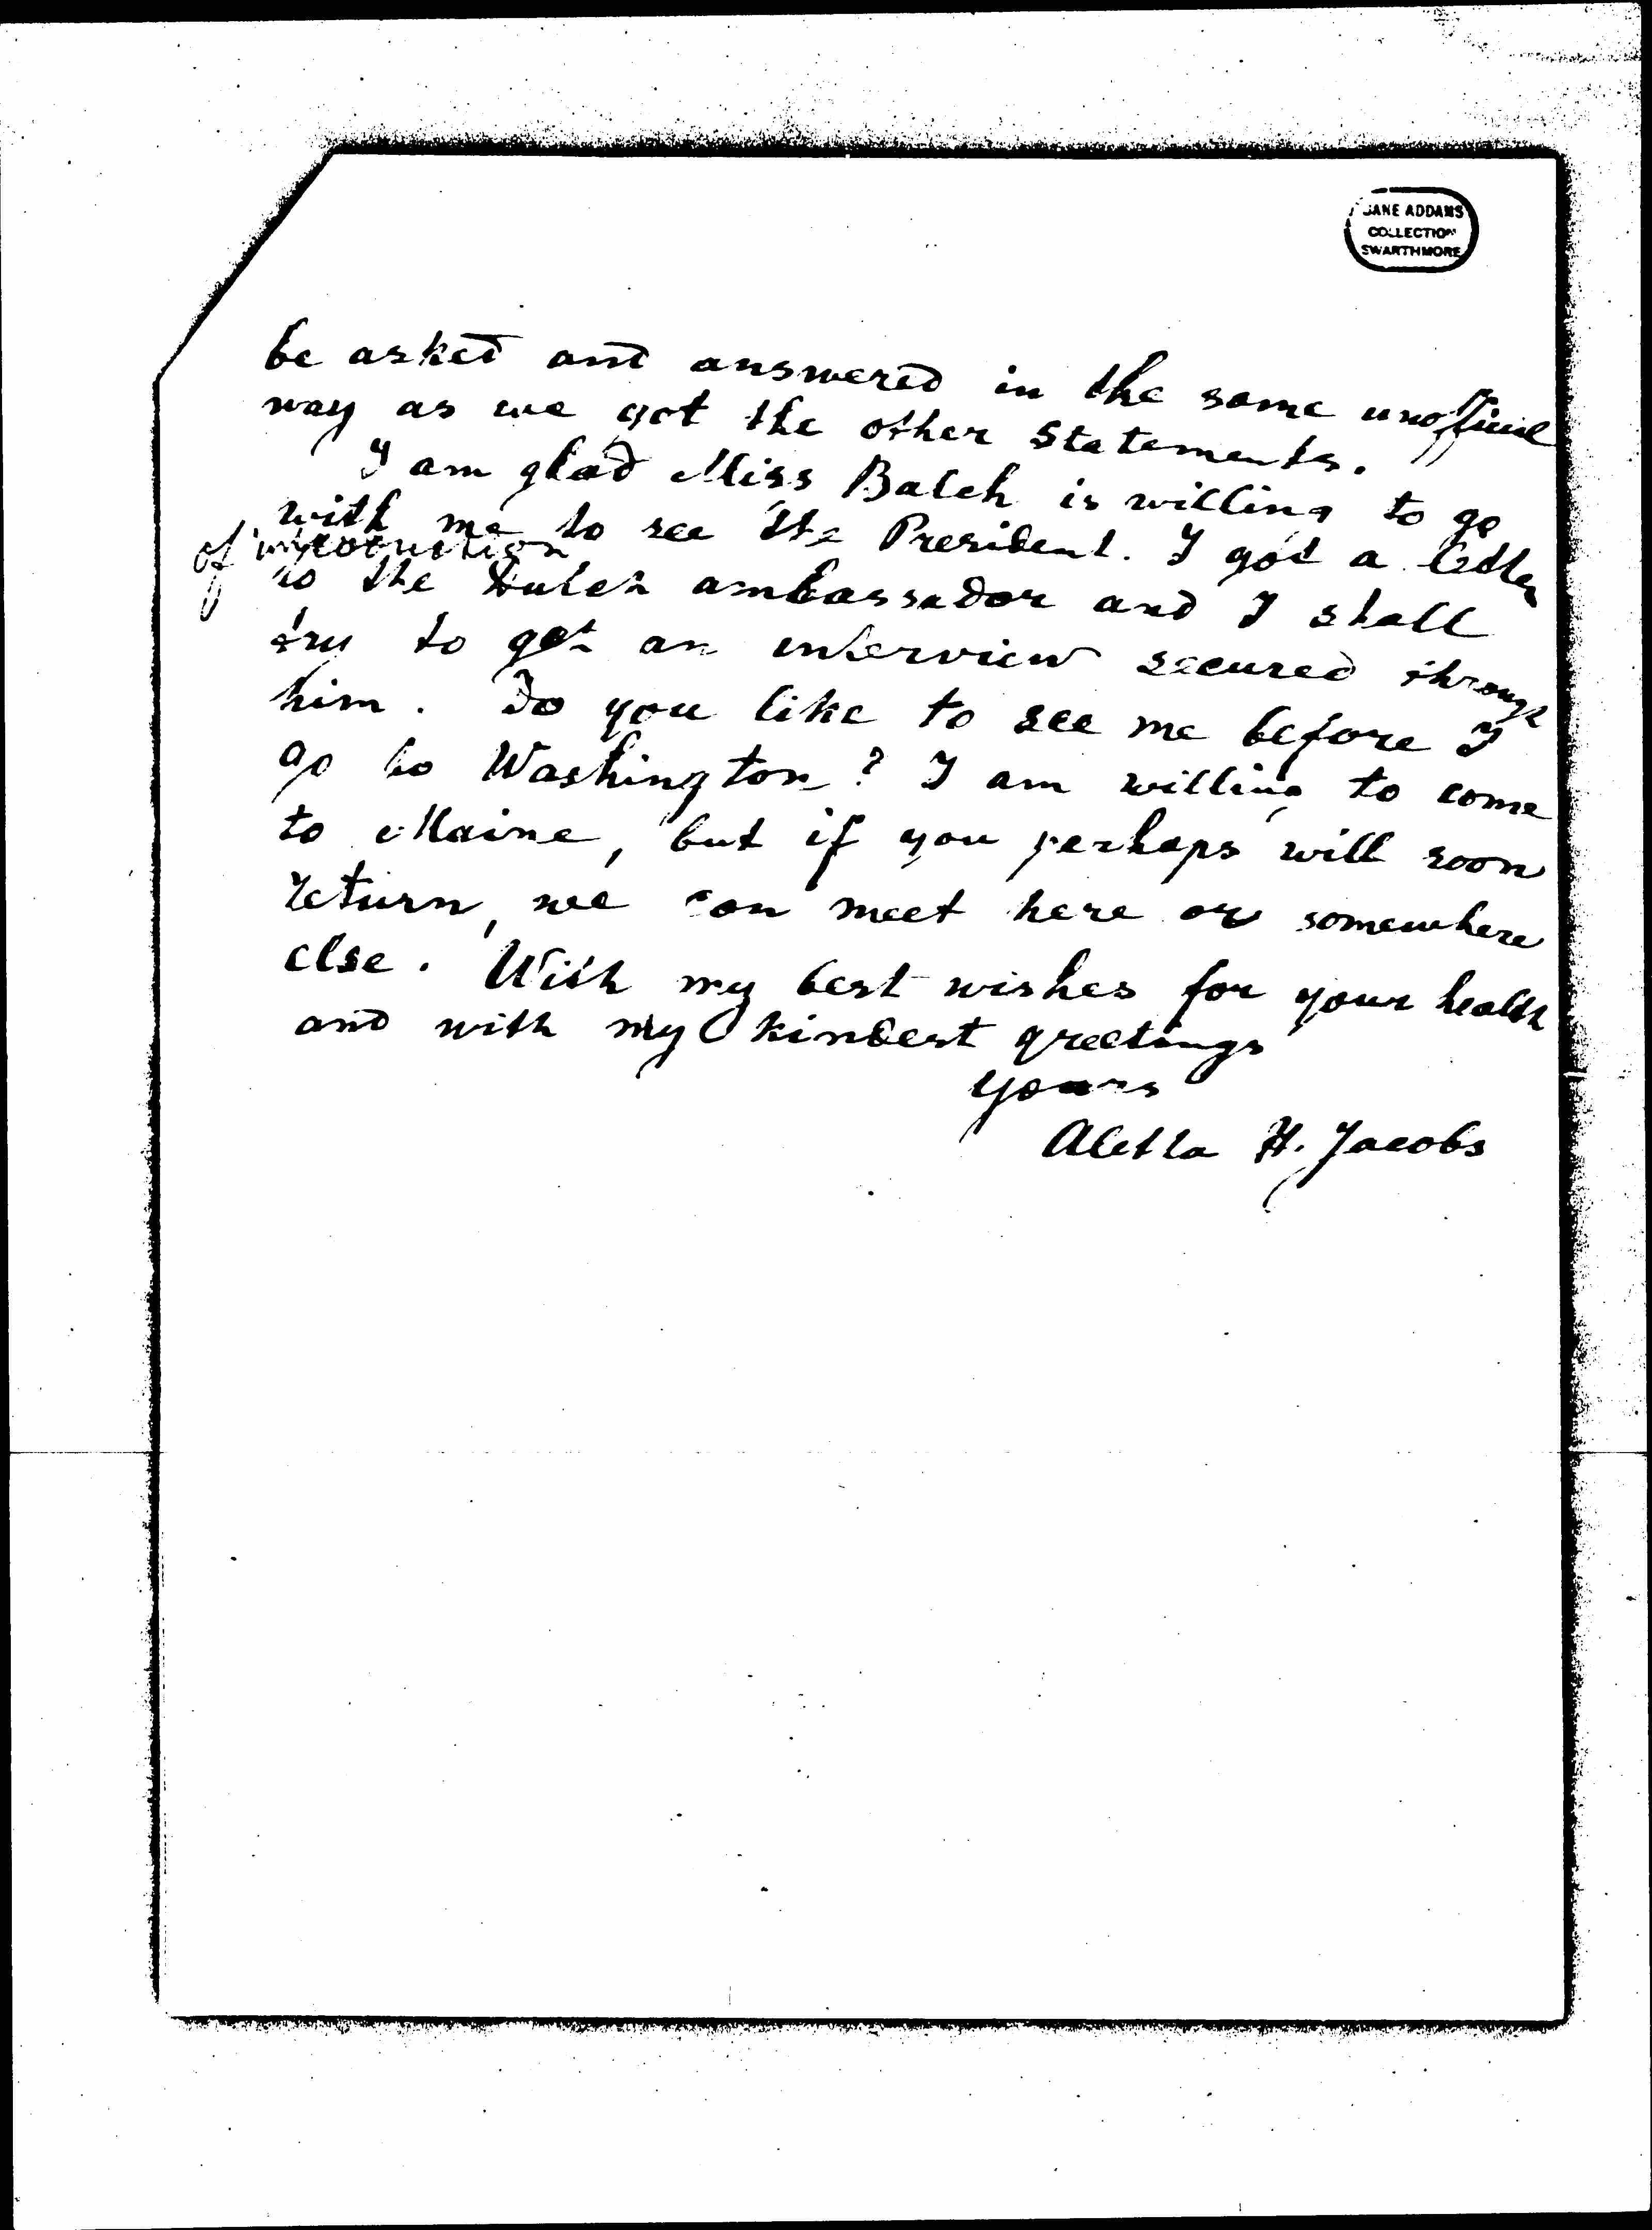 JANE ADDAMS
COLLECTION
SWARTHMORE
be asked and answered in the same unofficial
way as we got the other statements.
I am glad Miss Balch is willing to go
with me to see the President. I got a letter
of introduction
to the Dutch ambassador and I shall
try to get an interview secured through
him. Do you like to see me before I
go to Washington? I am willing to come
to Maine, but if you perhaps will soon
return, we can meet here or somewhere
else. With my best wishes for your health
and with my kindest greetings
yours
Aletta H. Jacobs